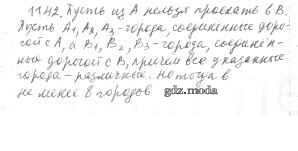 1142. Пусть из А нельзя проехать в В.
Пусть А1, А2, А3 - города, соединенные доро-
гой с А, а В1, В2, В3 - города, соединён-
ные дорогой с В, причём все указанные
города - различны. но тогда в
не менее 8 городов
gdz.moda